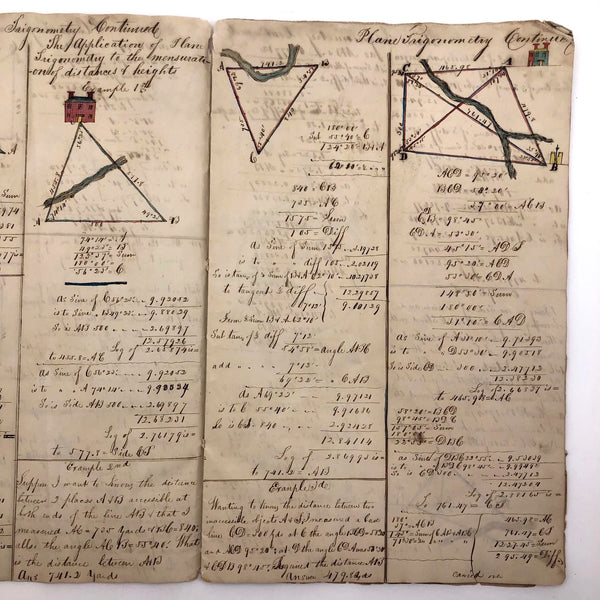 Trigonometry Continued
The Application of Plane
Trigonometry to the mensurati-
-on of distances & heights
Example 1st
A
B
74°14' = A
49°23' = B
123°37' = Sum
180°00'
56°23' = C
As Sine of C 56°23' 9.92052
is to Sine B 49°23' 9.88029
So is AB 500 2.69897
12.57926
Log of 2.65874 is =
to 455.8 = AC
As Sine of C 56°23' 9.92052
is to A 74°14' 9.98334
So is Side AB 500 2.69897
12.68231
Log of 2.76179 is =
to 577.8 = Side CB
Example 2nd
Suppose I want to know the distance
between 2 places A & B accessible at
both ends of the line AB & that I
measured AC = 735 yards & BC = 840
also the angle ACB = 55°40'. What
is the distance between AB
Ans 741.2 Yards
Plane Trigonometry Continued
741.2
A
B
C
180°00'
Sub 55°40' = C
124°20' = B & A
62°10' =
840 = CB
735 = AC
1575 = Sum
105 = Diff
As Sum 1575 3.19728
is to diff 105 2.02119
So is tan of ½ Sum B & A 62°10' 10.27738
to tangent ½ diff 12.29857
7°12' 9.10129
From ½ Sum B & A 62°10'
Sub tan of ½ diff 7°12'
54°58' = angle ABC
add 7°12'
69°22' = CAB
As A 69°22' 9.97121
is to C 55°40' 9.91686
So is CB 840 2.92428
12.84114
Log 2.86993 is =
to 741.2 = AB
Example 3d
Wanting to know the distance between two
inaccessible objects A & B, I measured a base
line CD = 300 yds at C the angle BCD = 58°20'
and ACD 95°20' at D the angle CDA = 53°30'
& CDB 98°45'. Required the distance AB
Answer 479.8 yds
C
465.98
A
D
B
761.47
ACD = 95°20'
BCD = 58°20'
37°00' = ACB
CDB = 98°45'
CDA = 53°30'
45°15' = ADB
95°20' = ACD
53°30' = CDA
148°50' = Sum
180°00'
31°10' = CAD
As Sine of A 31°10' 9.71393
is to D 53°30' 9.90518
So is CD 300 2.47712
12.38230
Log of 2.66837 is =
to 465.98 = AC
58°20' = BCD
98°45' = BDC
157°05' = Sum
22°55' = DBC
as Sine of DBC 22°55' 9.59039
is to BDC 98°45' 9.99492
So is CD 300 2.47712
12.47204
Log of 2.88165 is =
To 761.47 = CB
465.98 = AC
761.47 = CB
1227.45 = Sum
295.49 = Diff
carried over